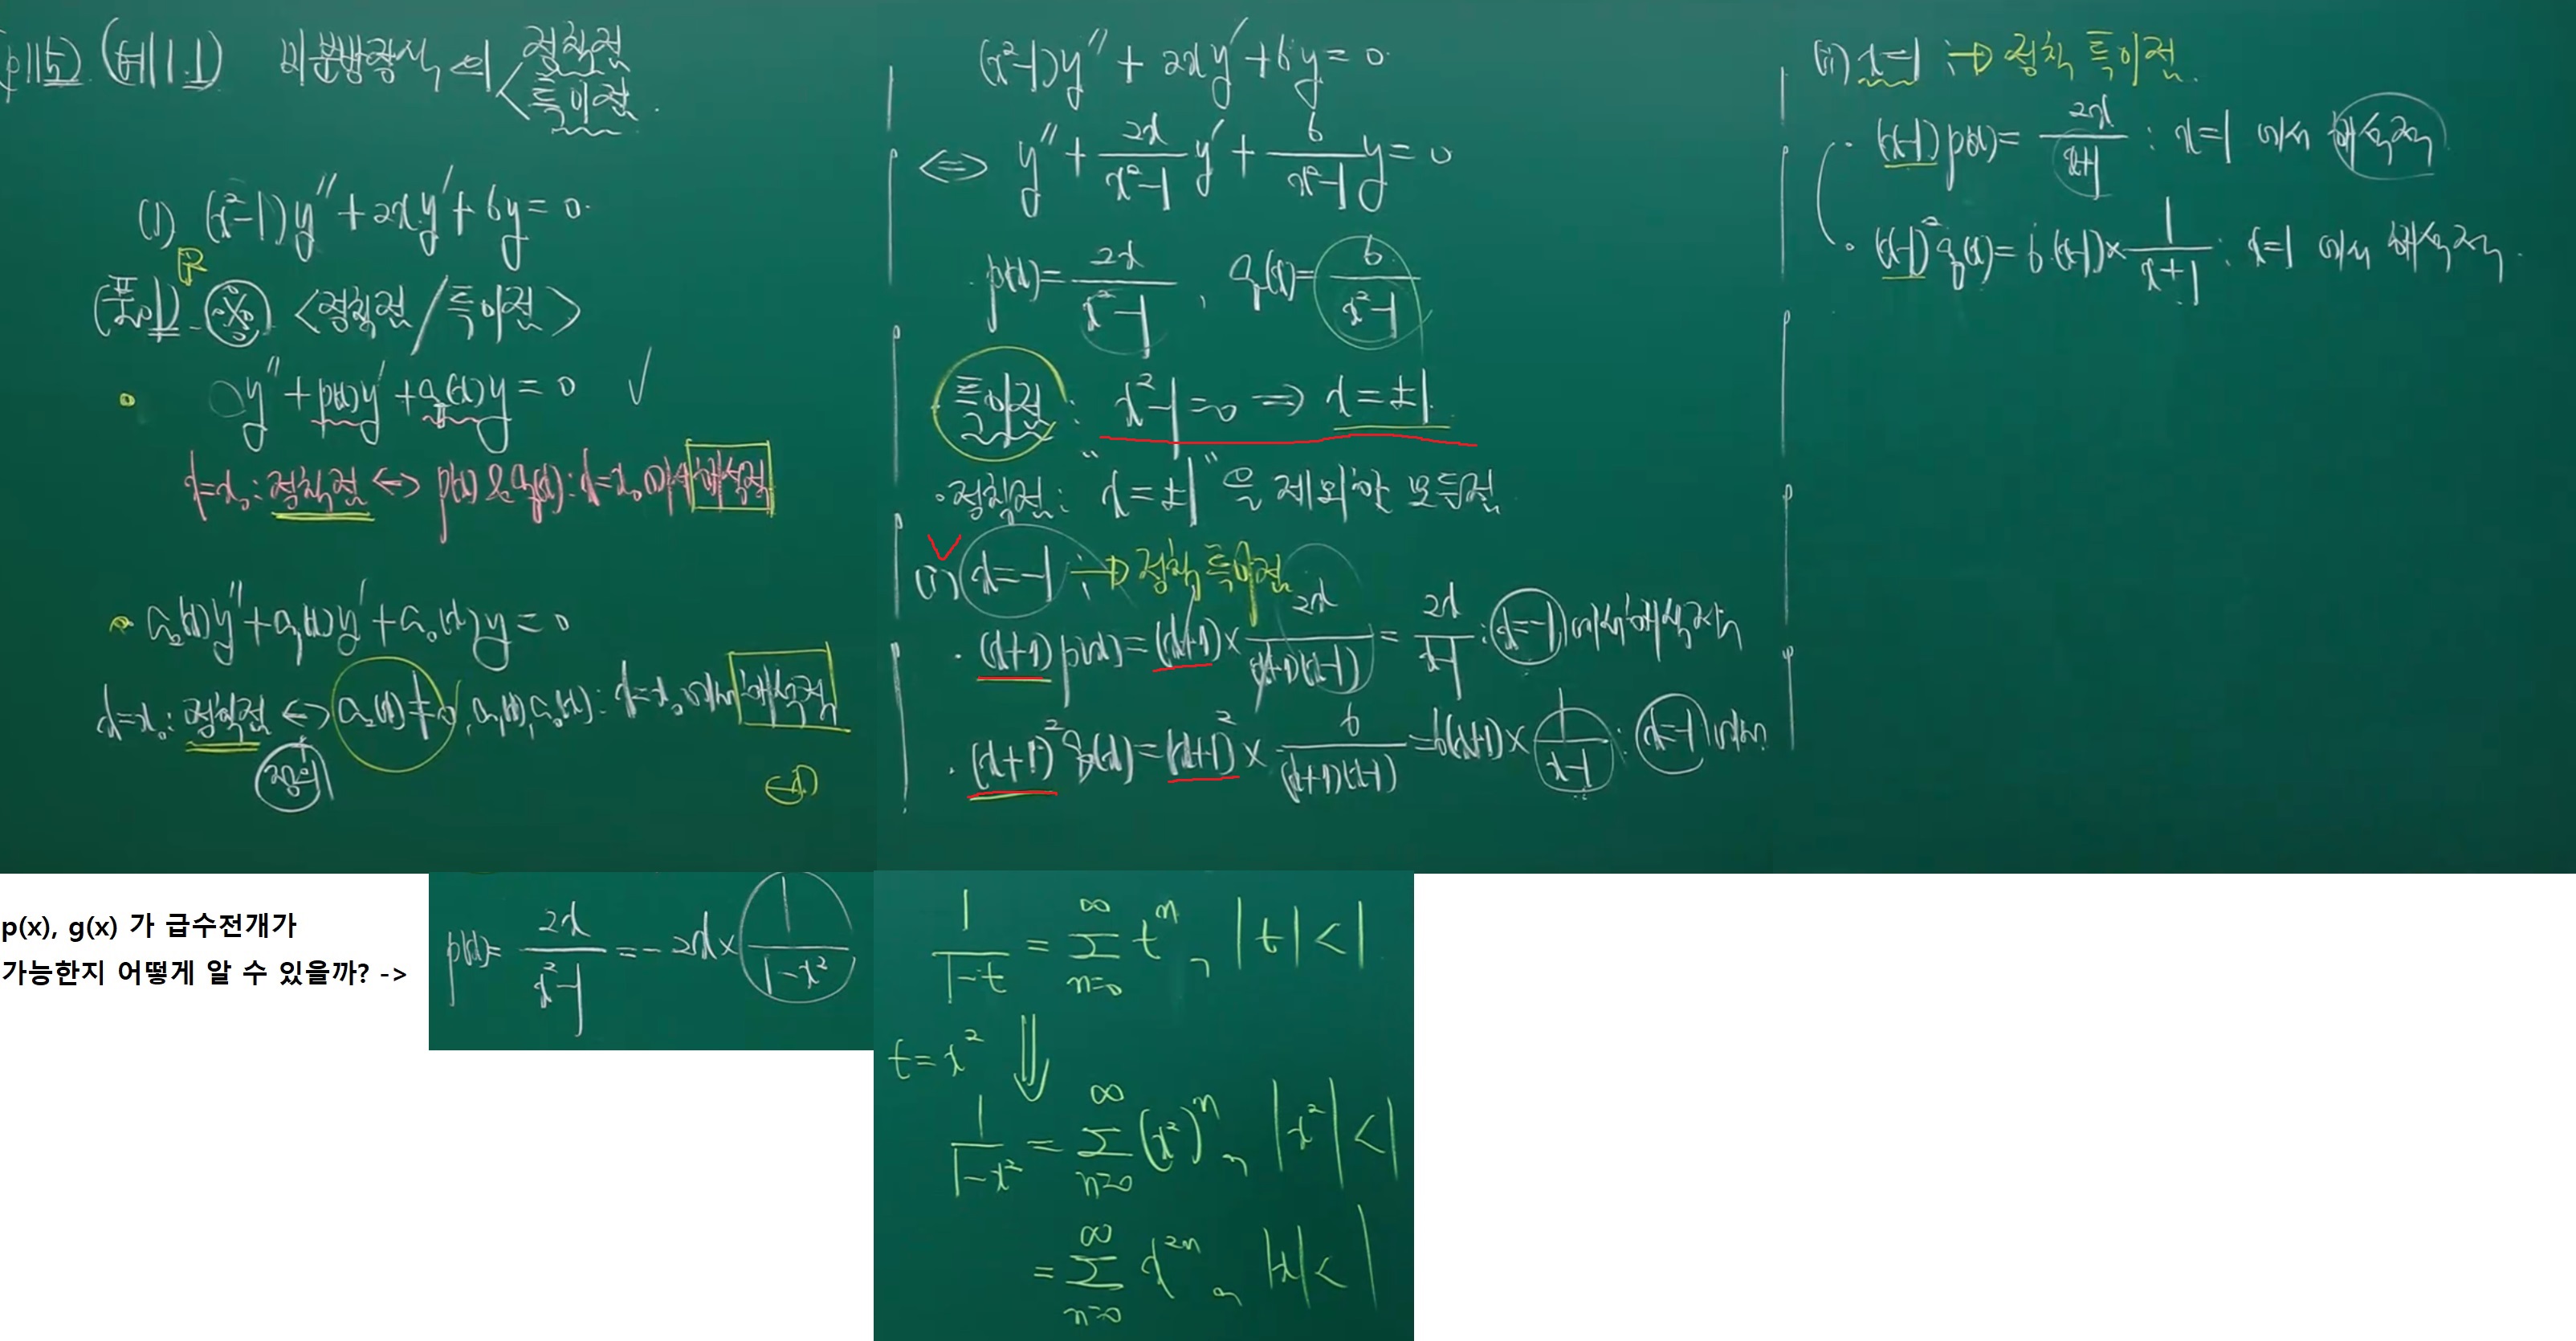 (p115) (예1.1) 미분방정식의 < 정칙점 특이점.
(1) (x²-1)y'' + 2xy' + 6y = 0.
(풀이) <정칙점/특이점>
y'' + p(x)y' + q(x)y = 0 ✓
x=x₀: 정칙점 ↔ p(x) & q(x): x=x₀에서 해석적
a₂(x)y'' + a₁(x)y' + a₀(x)y = 0
x=x₀: 정칙점 ↔ a₂(x)≠0, a₁(x), a₀(x): x=x₀에서 해석적
정의
(x²-1)y'' + 2xy' + 6y = 0
⟺ y'' + 2x/(x²-1) y' + 6/(x²-1) y = 0
p(x) = 2x/(x²-1), q(x) = 6/(x²-1)
특이점: x²-1=0 ⇒ x=±1
·정칙점: "x=±1"을 제외한 모든점
(i) x=-1 : → 정칙 특이점
· (x+1)p(x) = (x+1) × 2x/((x+1)(x-1)) = 2x/(x-1) : x=-1에서 해석적
· (x+1)²q(x) = (x+1)² × 6/((x+1)(x-1)) = 6(x+1) × 1/(x-1) : x=-1에서
(ii) x=1 : → 정칙 특이점.
· (x-1)p(x) = 2x/(x+1) : x=1 에서 해석적
· (x-1)²q(x) = 6·(x-1) × 1/(x+1) : x=1 에서 해석적.
p(x), g(x) 가 급수전개가
가능한지 어떻게 알 수 있을까? ->
p(x) = 2x/(x²-1) = -2x × 1/(1-x²)
1/(1-t) = ∑_{n=0}^{∞} tⁿ, |t|<1
t=x² ⇓
1/(1-x²) = ∑_{n=0}^{∞} (x²)ⁿ, |x²|<1
= ∑_{n=0}^{∞} x²ⁿ, |x|<1